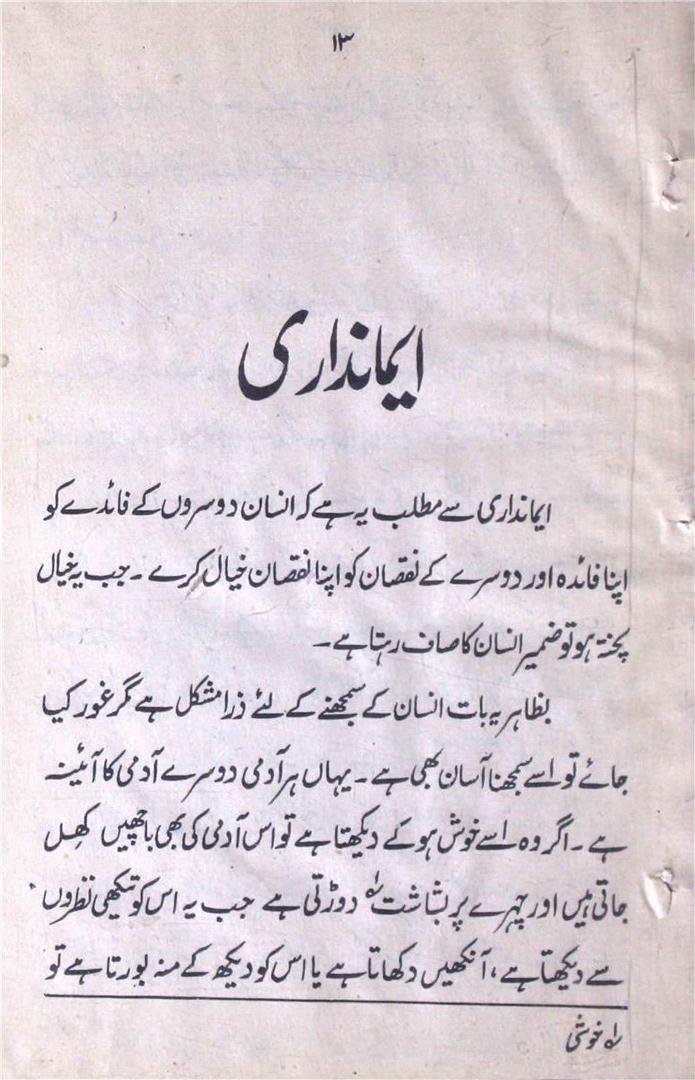 ۱۳
ایمانداری
ایمانداری سے مطلب یہ ہے کہ انسان دوسروں کے فائدے کو
اپنا فائدہ اور دوسرے کے نقصان کو اپنا نقصان خیال کرے ۔ جب یہ خیال
پختہ ہو تو ضمیر انسان کا صاف رہتا ہے ۔
بظاہر یہ بات انسان کے سمجھنے کے لئے ذرا مشکل ہے گر غور کیا
جائے تو اسے سمجھنا آسان بھی ہے ۔ یہاں ہر آدمی دوسرے آدمی کا آئینہ
ہے ۔ اگر وہ اسے خوش ہو کے دیکھتا ہے تو اس آدمی کی بھی باچھیں کھل
جاتی ہیں اور چہرے پر بشاشت ؎۱ دوڑتی ہے جب یہ اس کو تیکھی نظروں
سے دیکھتا ہے ، آنکھیں دکھاتا ہے یا اس کو دیکھ کے منہ بورتا ہے تو
؎۱ خوشی